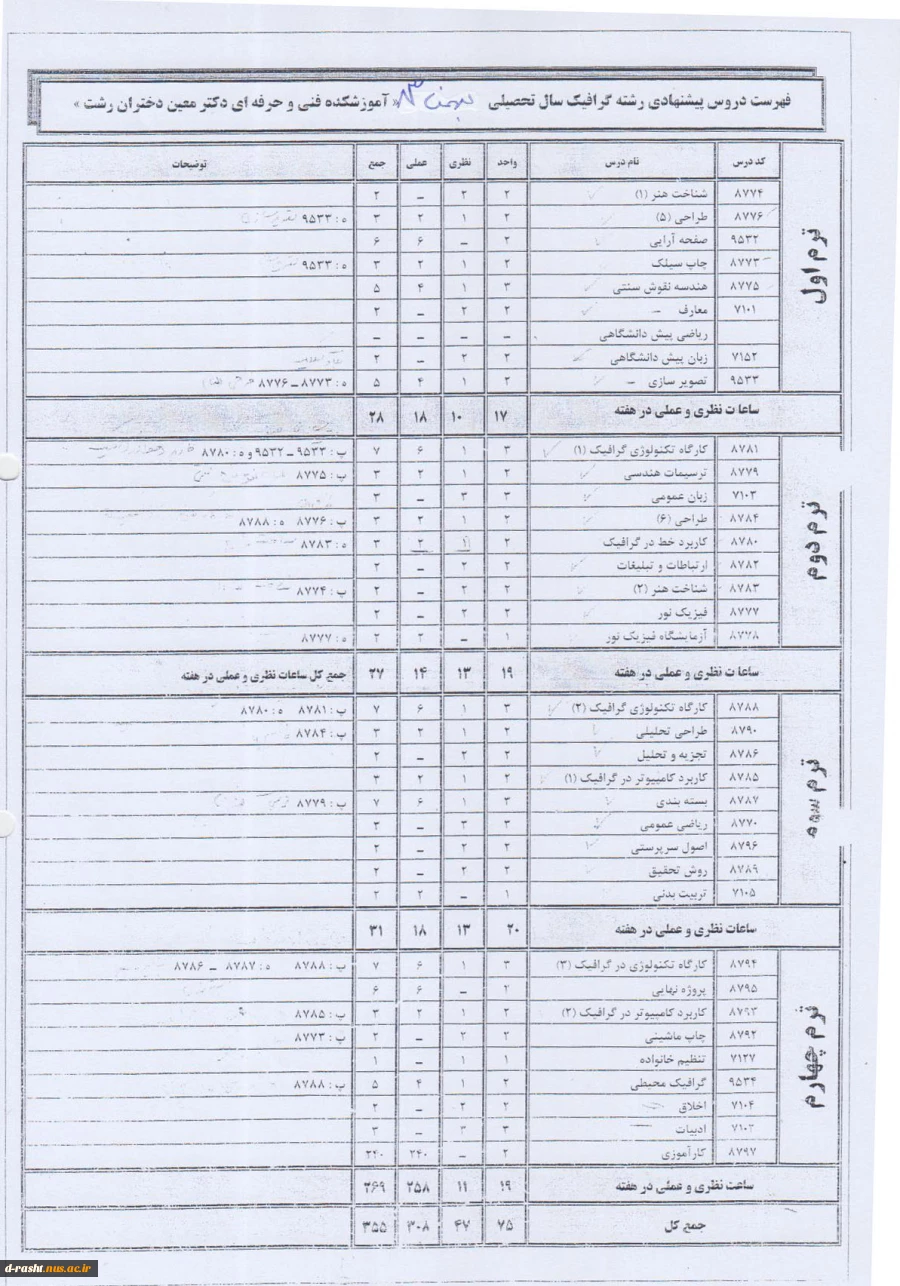 فهرست دروس پیشنهادی رشته گرافیک سال تحصیلی « آموزشکده فنی و حرفه ای دکتر معین دختران رشت »
کد درس نام درس واحد نظری عملی جمع توضیحات
ترم اول
۸۷۷۴ شناخت هنر (۱) ۲ ۲ – ۲
۸۷۷۶ طراحی (۵) ۲ ۱ ۲ ۳ ه : ۹۵۳۳
۹۵۳۲ صفحه آرایی ۲ – ۶ ۶
۸۷۷۳ چاپ سیلک ۲ ۱ ۲ ۳ ه : ۹۵۳۳
۸۷۷۵ هندسه نقوش سنتی ۳ ۱ ۴ ۵
۷۱۰۱ معارف ۲ ۲ – ۲
ریاضی پیش دانشگاهی – – – –
۷۱۵۲ زبان پیش دانشگاهی ۲ ۲ – ۲
۹۵۳۳ تصویر سازی ۲ ۱ ۴ ۵ ه : ۸۷۷۳ – ۸۷۷۶
ساعات نظری و عملی در هفته ۱۷ ۱۰ ۱۸ ۲۸
ترم دوم
۸۷۸۱ کارگاه تکنولوژی گرافیک (۱) ۳ ۱ ۶ ۷ پ : ۹۵۳۳ – ۹۵۳۲ و ه : ۸۷۸۰
۸۷۷۹ ترسیمات هندسی ۲ ۱ ۲ ۳ پ : ۸۷۷۵
۷۱۰۳ زبان عمومی ۳ ۳ – ۳
۸۷۸۴ طراحی (۶) ۲ ۱ ۲ ۳ پ : ۸۷۷۶ ه : ۸۷۸۸
۸۷۸۰ کاربرد خط در گرافیک ۲ ۱ ۲ ۳ ه : ۸۷۸۳
۸۷۸۲ ارتباطات و تبلیغات ۲ ۲ – ۲
۸۷۸۳ شناخت هنر (۲) ۲ ۲ – ۲ پ : ۸۷۷۴
۸۷۷۷ فیزیک نور ۲ ۲ – ۲
۸۷۷۸ آزمایشگاه فیزیک نور ۱ – ۲ ۲ ه : ۸۷۷۷
ساعات نظری و عملی در هفته ۱۹ ۱۳ ۱۴ ۲۷ جمع کل ساعات نظری و عملی در هفته
ترم سوم
۸۷۸۸ کارگاه تکنولوژی گرافیک (۲) ۳ ۱ ۶ ۷ پ : ۸۷۸۱ ه : ۸۷۸۰
۸۷۹۰ طراحی تحلیلی ۲ ۱ ۲ ۳ پ : ۸۷۸۴
۸۷۸۶ تجزیه و تحلیل ۲ ۲ – ۲
۸۷۸۵ کاربرد کامپیوتر در گرافیک (۱) ۲ ۱ ۲ ۳
۸۷۸۷ بسته بندی ۳ ۱ ۶ ۷ پ : ۸۷۷۹
۸۷۷۰ ریاضی عمومی ۳ ۳ – ۳
۸۷۹۶ اصول سرپرستی ۲ ۲ – ۲
۸۷۸۹ روش تحقیق ۲ ۲ – ۲
۷۱۰۵ تربیت بدنی ۱ – ۲ ۲
ساعات نظری و عملی در هفته ۲۰ ۱۳ ۱۸ ۳۱
ترم چهارم
۸۷۹۴ کارگاه تکنولوژی در گرافیک (۳) ۳ ۱ ۶ ۷ پ : ۸۷۸۸ ه : ۸۷۸۷ – ۸۷۸۶
۸۷۹۵ پروژه نهایی ۲ – ۶ ۶
۸۷۹۳ کاربرد کامپیوتر در گرافیک (۲) ۲ ۱ ۲ ۳ پ : ۸۷۸۵
۸۷۹۲ چاپ ماشینی ۲ ۲ – ۲ پ : ۸۷۷۳
۷۱۲۷ تنظیم خانواده ۱ ۱ – ۱
۹۵۳۴ گرافیک محیطی ۲ ۱ ۴ ۵ پ : ۸۷۸۸
۷۱۰۴ اخلاق ۲ ۲ – ۲
۷۱۰۲ ادبیات ۳ ۳ – ۳
۸۷۹۷ کارآموزی ۲ – ۲۴۰ ۲۴۰
ساعت نظری و عملی در هفته ۱۹ ۱۱ ۲۵۸ ۲۶۹
جمع کل ۷۵ ۴۷ ۳۰۸ ۳۵۵
d-rasht.nus.ac.ir